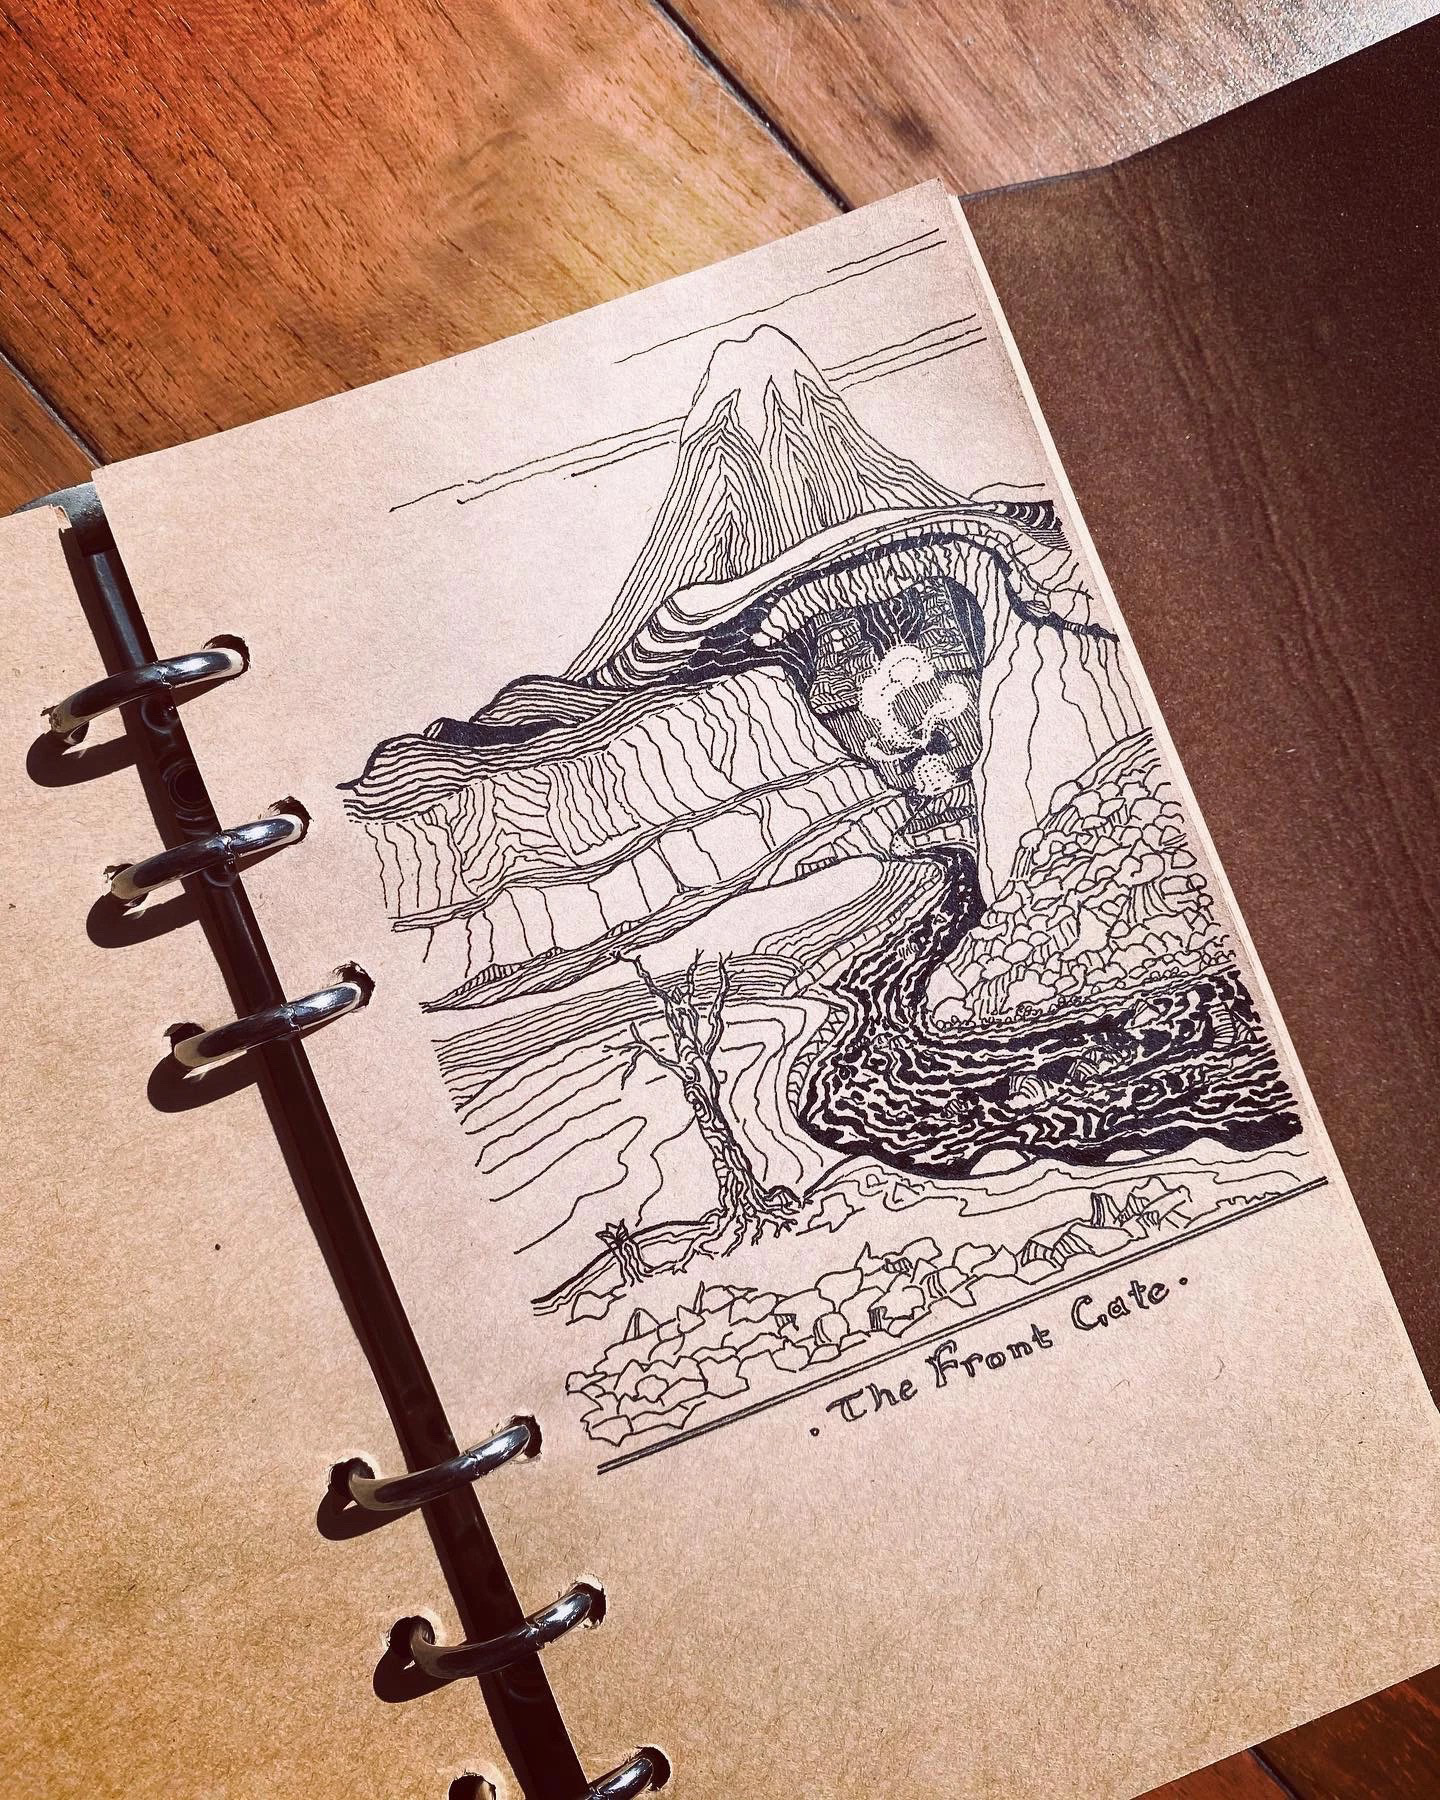 · The Front Gate ·